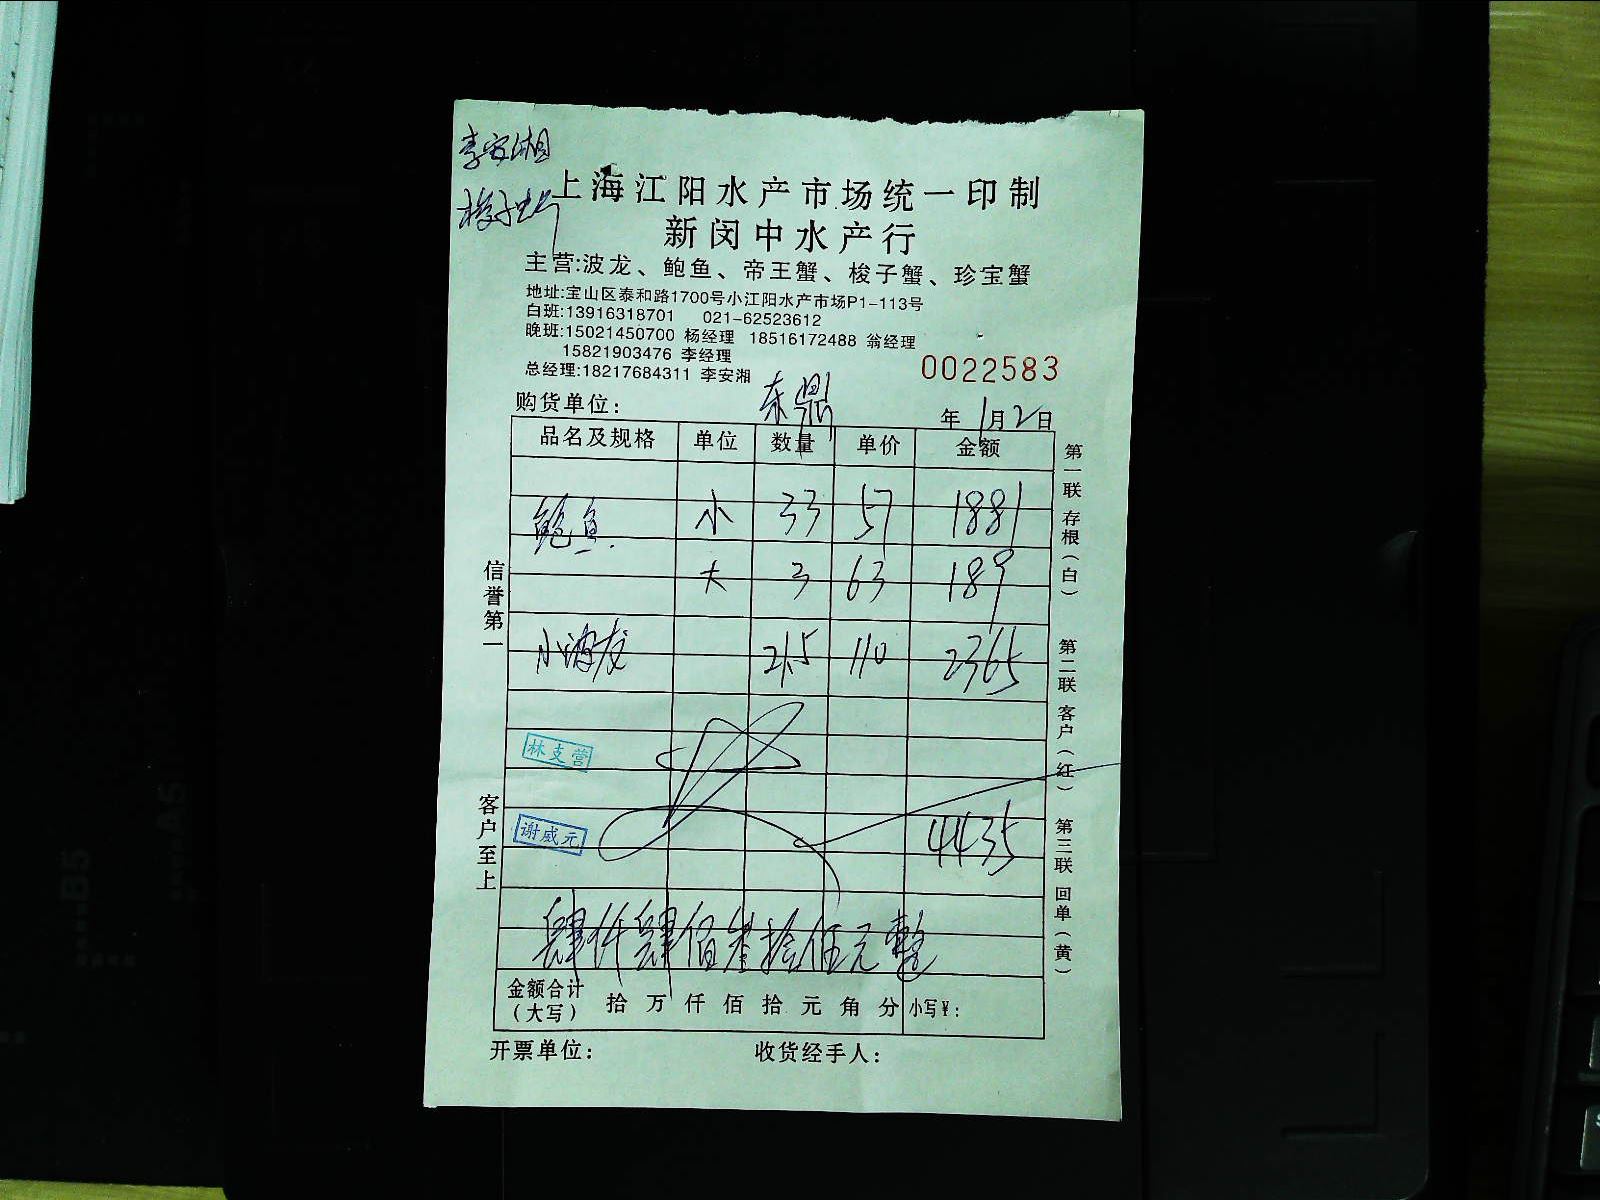 李安湘
梭子蟹
上海江阳水产市场统一印制
新闵中水产行
主营:波龙、鲍鱼、帝王蟹、梭子蟹、珍宝蟹
地址:宝山区泰和路1700号小江阳水产市场P1-113号
白班:13916318701 021-62523612
晚班:15021450700 杨经理 18516172488 翁经理
15821903476 李经理
总经理:18217684311 李安湘
0022583
购货单位: 东鼎
年 1月2日
品名及规格 单位 数量 单价 金额
鲍鱼 小 33 57 1881
大 3 63 189
小波龙 21.5 110 2365
林支营
谢威元
4435
肆仟肆佰叁拾伍元整
金额合计
(大写) 拾 万 仟 佰 拾 元 角 分 小写¥:
开票单位: 收货经手人:
信誉第一
客户至上
第一联 存根(白)
第二联 客户(红)
第三联 回单(黄)